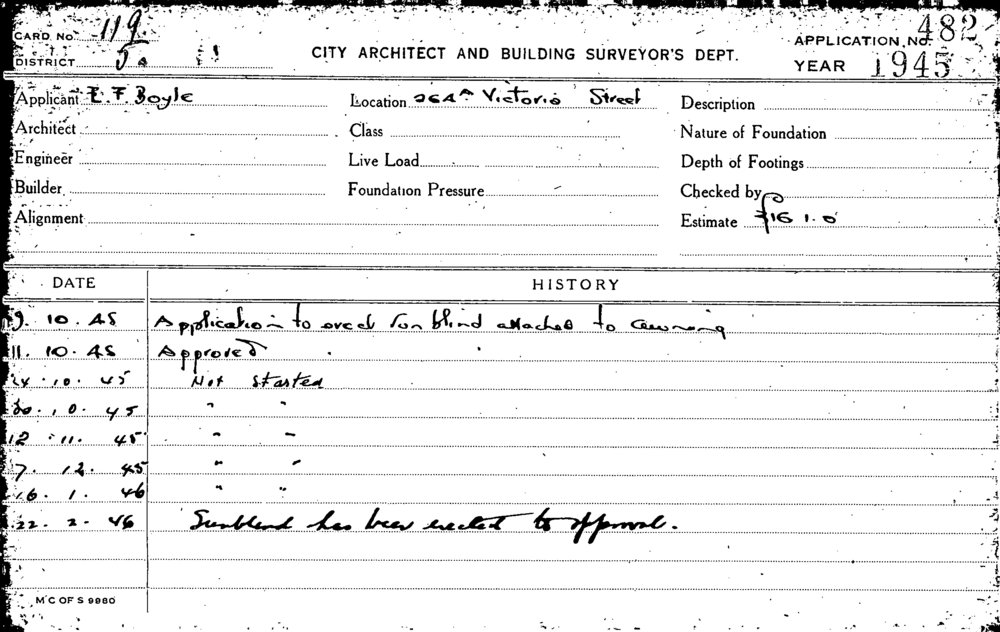 CARD No. 119
DISTRICT 5
CITY ARCHITECT AND BUILDING SURVEYOR'S DEPT.
APPLICATION No. 482
YEAR 1945
Applicant E. F. Boyle Location 264A Victoria Street Description
Architect Class Nature of Foundation
Engineer Live Load Depth of Footings
Builder Foundation Pressure Checked by
Alignment Estimate £16 1. 0
DATE HISTORY
9. 10. 45 Application to erect sun blind attached to awning
11. 10. 45 Approved
24. 10. 45 Not Started
30. 10. 45 " "
12 11. 45 " "
7. 12. 45 " "
16. 1. 46 " "
22. 2. 46 Sunblind has been erected to approval.
M C OF S 9980